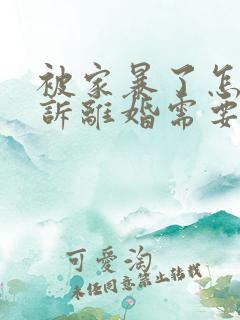 被家暴了怎
訴離婚需要
可愛淘
未任同意禁止转载